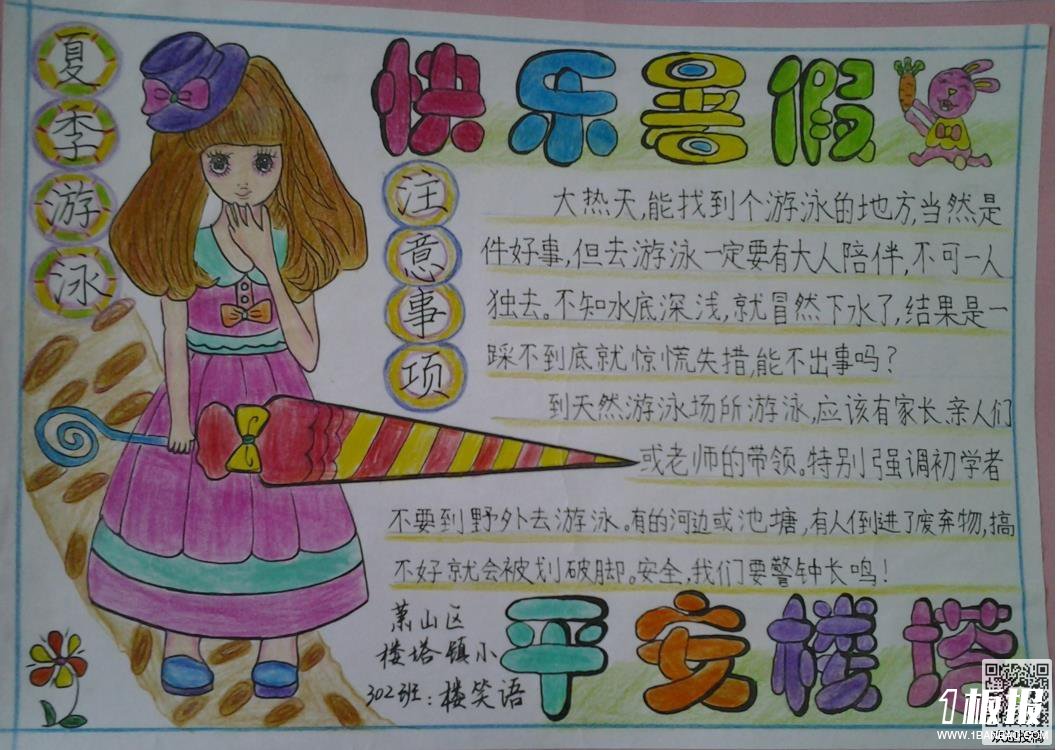 快乐暑假
夏季游泳
注意事项
大热天,能找到个游泳的地方,当然是
件好事,但去游泳一定要有大人陪伴,不可一人
独去。不知水底深浅,就冒然下水了,结果是一
踩不到底就惊慌失措,能不出事吗?
到天然游泳场所游泳,应该有家长、亲人们
或老师的带领。特别强调初学者
不要到野外去游泳。有的河边或池塘,有人倒进了废弃物,搞
不好就会被划破脚。安全,我们要警钟长鸣!
萧山区
楼塔镇小
302班:楼笑语
平安楼塔
1板报
WWW.1BANBAO.COM
欢迎投稿